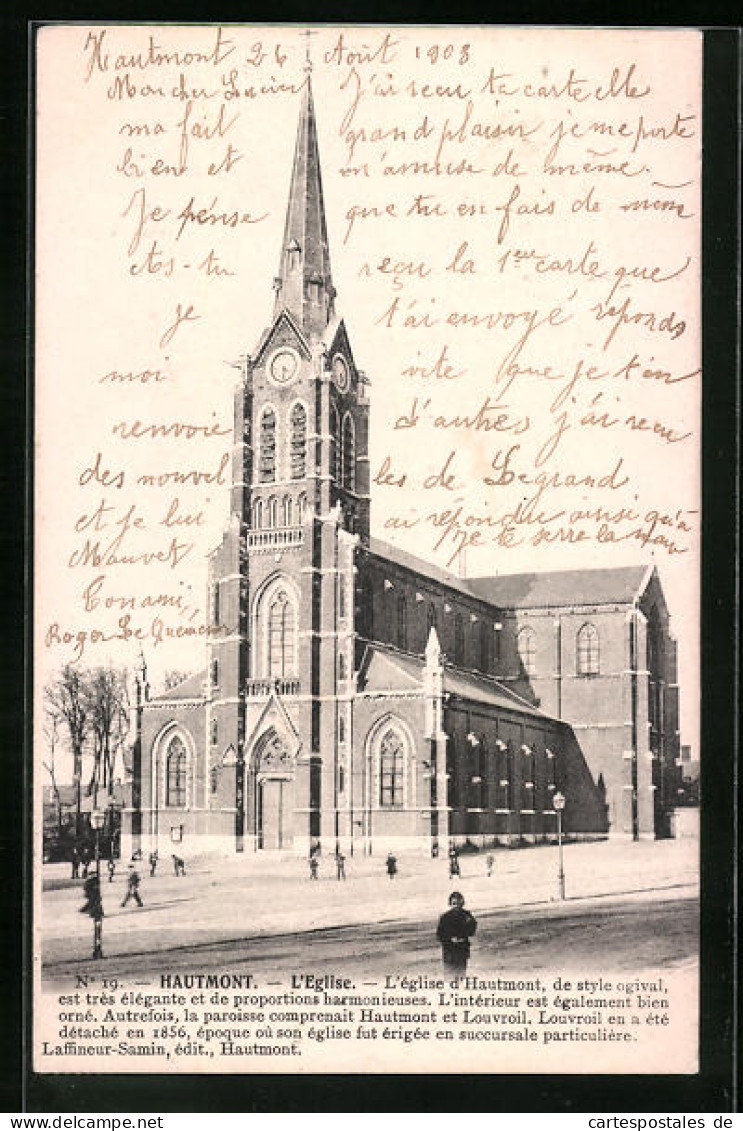 Hautmont 26 Août 1908
Mon cher Lucien J'ai recu ta carte elle
ma fait grand plaisir je me porte
bien et m'amuse de même.
Je pense que tu en fais de même
As-tu reçu la 1ere carte que
je t'ai envoyé réponds
moi vite que je t'en
renvoie d'autres j'ai recu
des nouvelles de Legrand
et je lui ai répondu ainsi qu'a
Mauvet Je te serre la main
Ton ami,
Roger Le Quément
Nº 19. — HAUTMONT. — L'Eglise. — L'église d'Hautmont, de style ogival,
est très élégante et de proportions harmonieuses. L'intérieur est également bien
orné. Autrefois, la paroisse comprenait Hautmont et Louvroil. Louvroil en a été
détaché en 1856, époque où son église fut érigée en succursale particulière.
Laffineur-Samin, édit., Hautmont.
cartespostales de